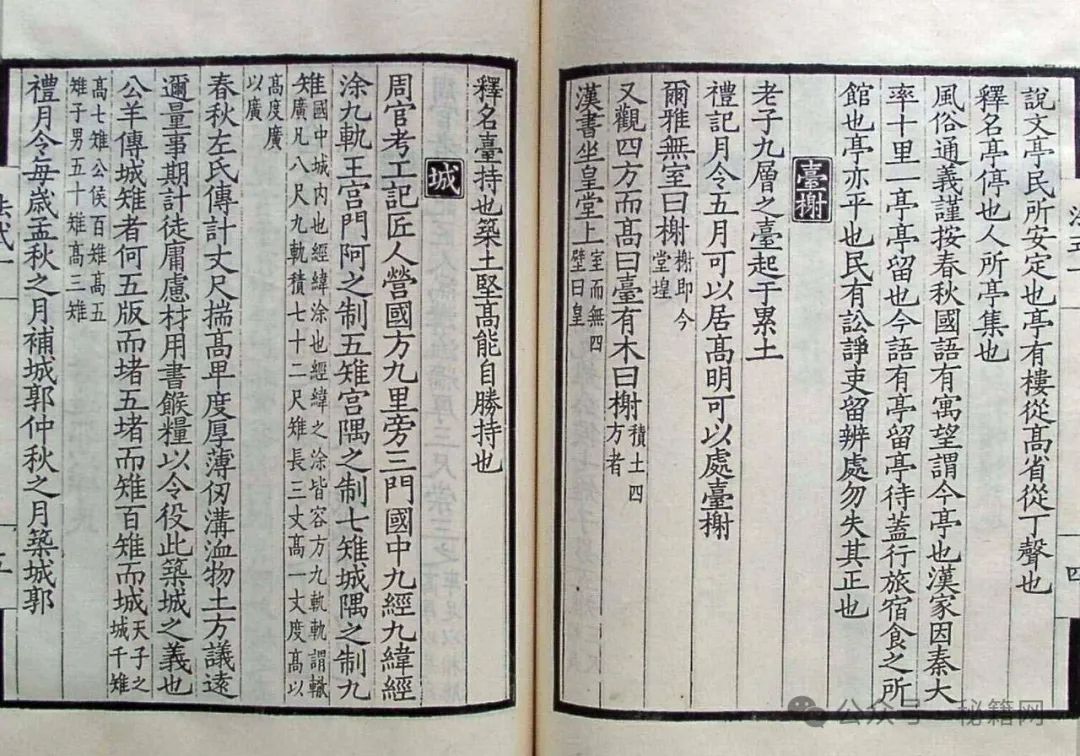 說文亭民所安定也亭有樓從高省從丁聲也
釋名亭停也人所亭集也
風俗通義謹按春秋國語有寓望謂今亭也漢家因秦大
率十里一亭亭留也今語有亭留亭待蓋行旅宿食之所
館也亭亦平也民有訟諍吏留辨處勿失其正也
臺榭
老子九層之臺起于累土
禮記月令五月可以居高明可以處臺榭
爾雅無室曰榭榭即今堂堭
又觀四方而高曰臺有木曰榭積土四方者
漢書坐皇堂上室而無四壁曰皇
四
釋名臺持也築土堅高能自勝持也
城
周官考工記匠人營國方九里旁三門國中九經九緯經
涂九軌王宮門阿之制五雉宮隅之制七雉城隅之制九
雉國中城内也經緯涂也經緯之涂皆容方九軌軌謂轍廣凡八尺九軌積七十二尺雉長三丈高一丈度高以
高度廣以廣
春秋左氏傳計丈尺揣高卑度厚薄仞溝洫物土方議遠
邇量事期計徒庸慮材用書餱糧以令役此築城之義也
公羊傳城雉者何五版而堵五堵而雉百雉而城天子之城千雉
高七雉公侯百雉高五雉子男五十雉高三雉
禮月令每歲孟秋之月補城郭仲秋之月築城郭
公众号·秘籍网